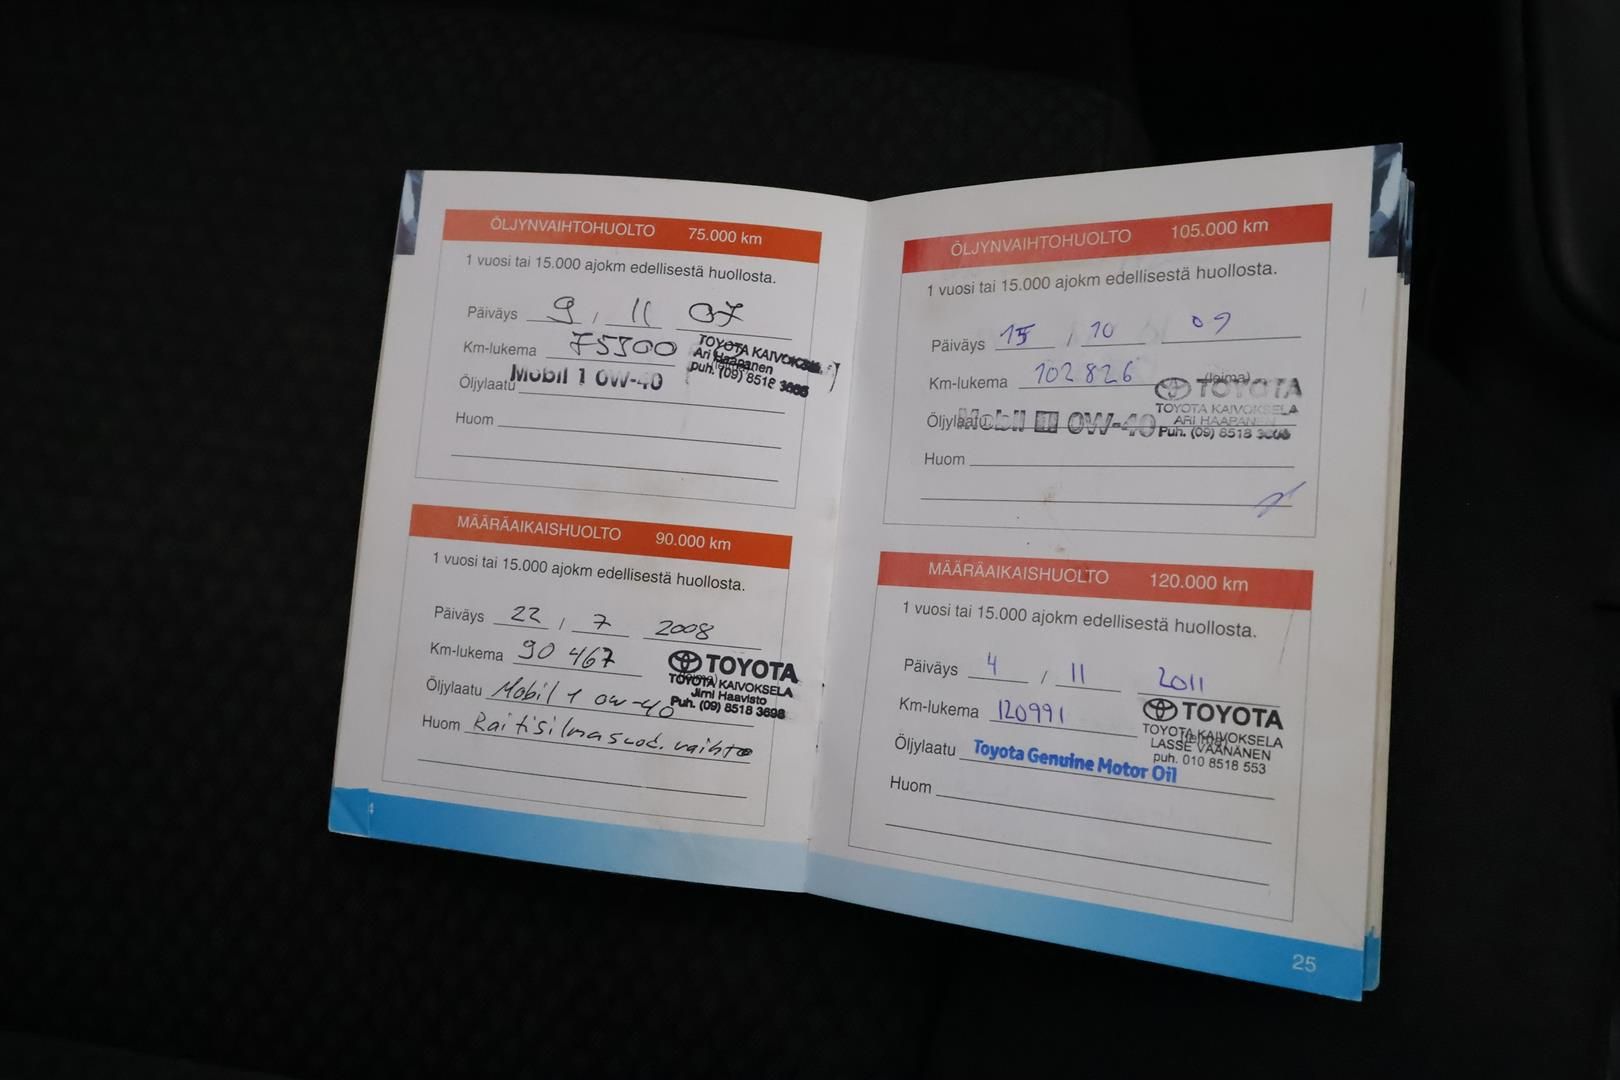 ÖLJYNVAIHTOHUOLTO 75.000 km
1 vuosi tai 15.000 ajokm edellisestä huollosta.
Päiväys 9 / 11 07
Km-lukema 75300
TOYOTA KAIVOKSELA
Ari Haapanen
puh. (09) 8518 3695
Öljylaatu Mobil 1 0W-40
Huom
MÄÄRÄAIKAISHUOLTO 90.000 km
1 vuosi tai 15.000 ajokm edellisestä huollosta.
Päiväys 22 / 7 2008
Km-lukema 90 467
(leima)
TOYOTA
TOYOTA KAIVOKSELA
Jimi Haavisto
Puh. (09) 8518 3698
Öljylaatu Mobil 1 0W-40
Huom Raitisilmasuod. vaihto
4
ÖLJYNVAIHTOHUOLTO 105.000 km
1 vuosi tai 15.000 ajokm edellisestä huollosta.
Päiväys 15 / 10 09
Km-lukema 102826
(leima)
TOYOTA
TOYOTA KAIVOKSELA
ARI HAAPANEN
Puh. (09) 8518
Öljylaatu Mobil 1 0W-40
Huom
MÄÄRÄAIKAISHUOLTO 120.000 km
1 vuosi tai 15.000 ajokm edellisestä huollosta.
Päiväys 4 / 11 2011
Km-lukema 120991
TOYOTA
TOYOTA KAIVOKSELA
LASSE VÄÄNÄNEN
puh. 010 8518 553
Öljylaatu Toyota Genuine Motor Oil
Huom
25